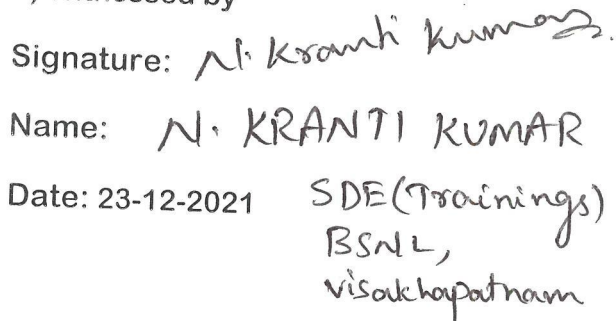 Signature: N. Kranti Kumar.
Name: N. KRANTI KUMAR
Date: 23-12-2021 SDE(Trainings)
BSNL,
visakhapatnam